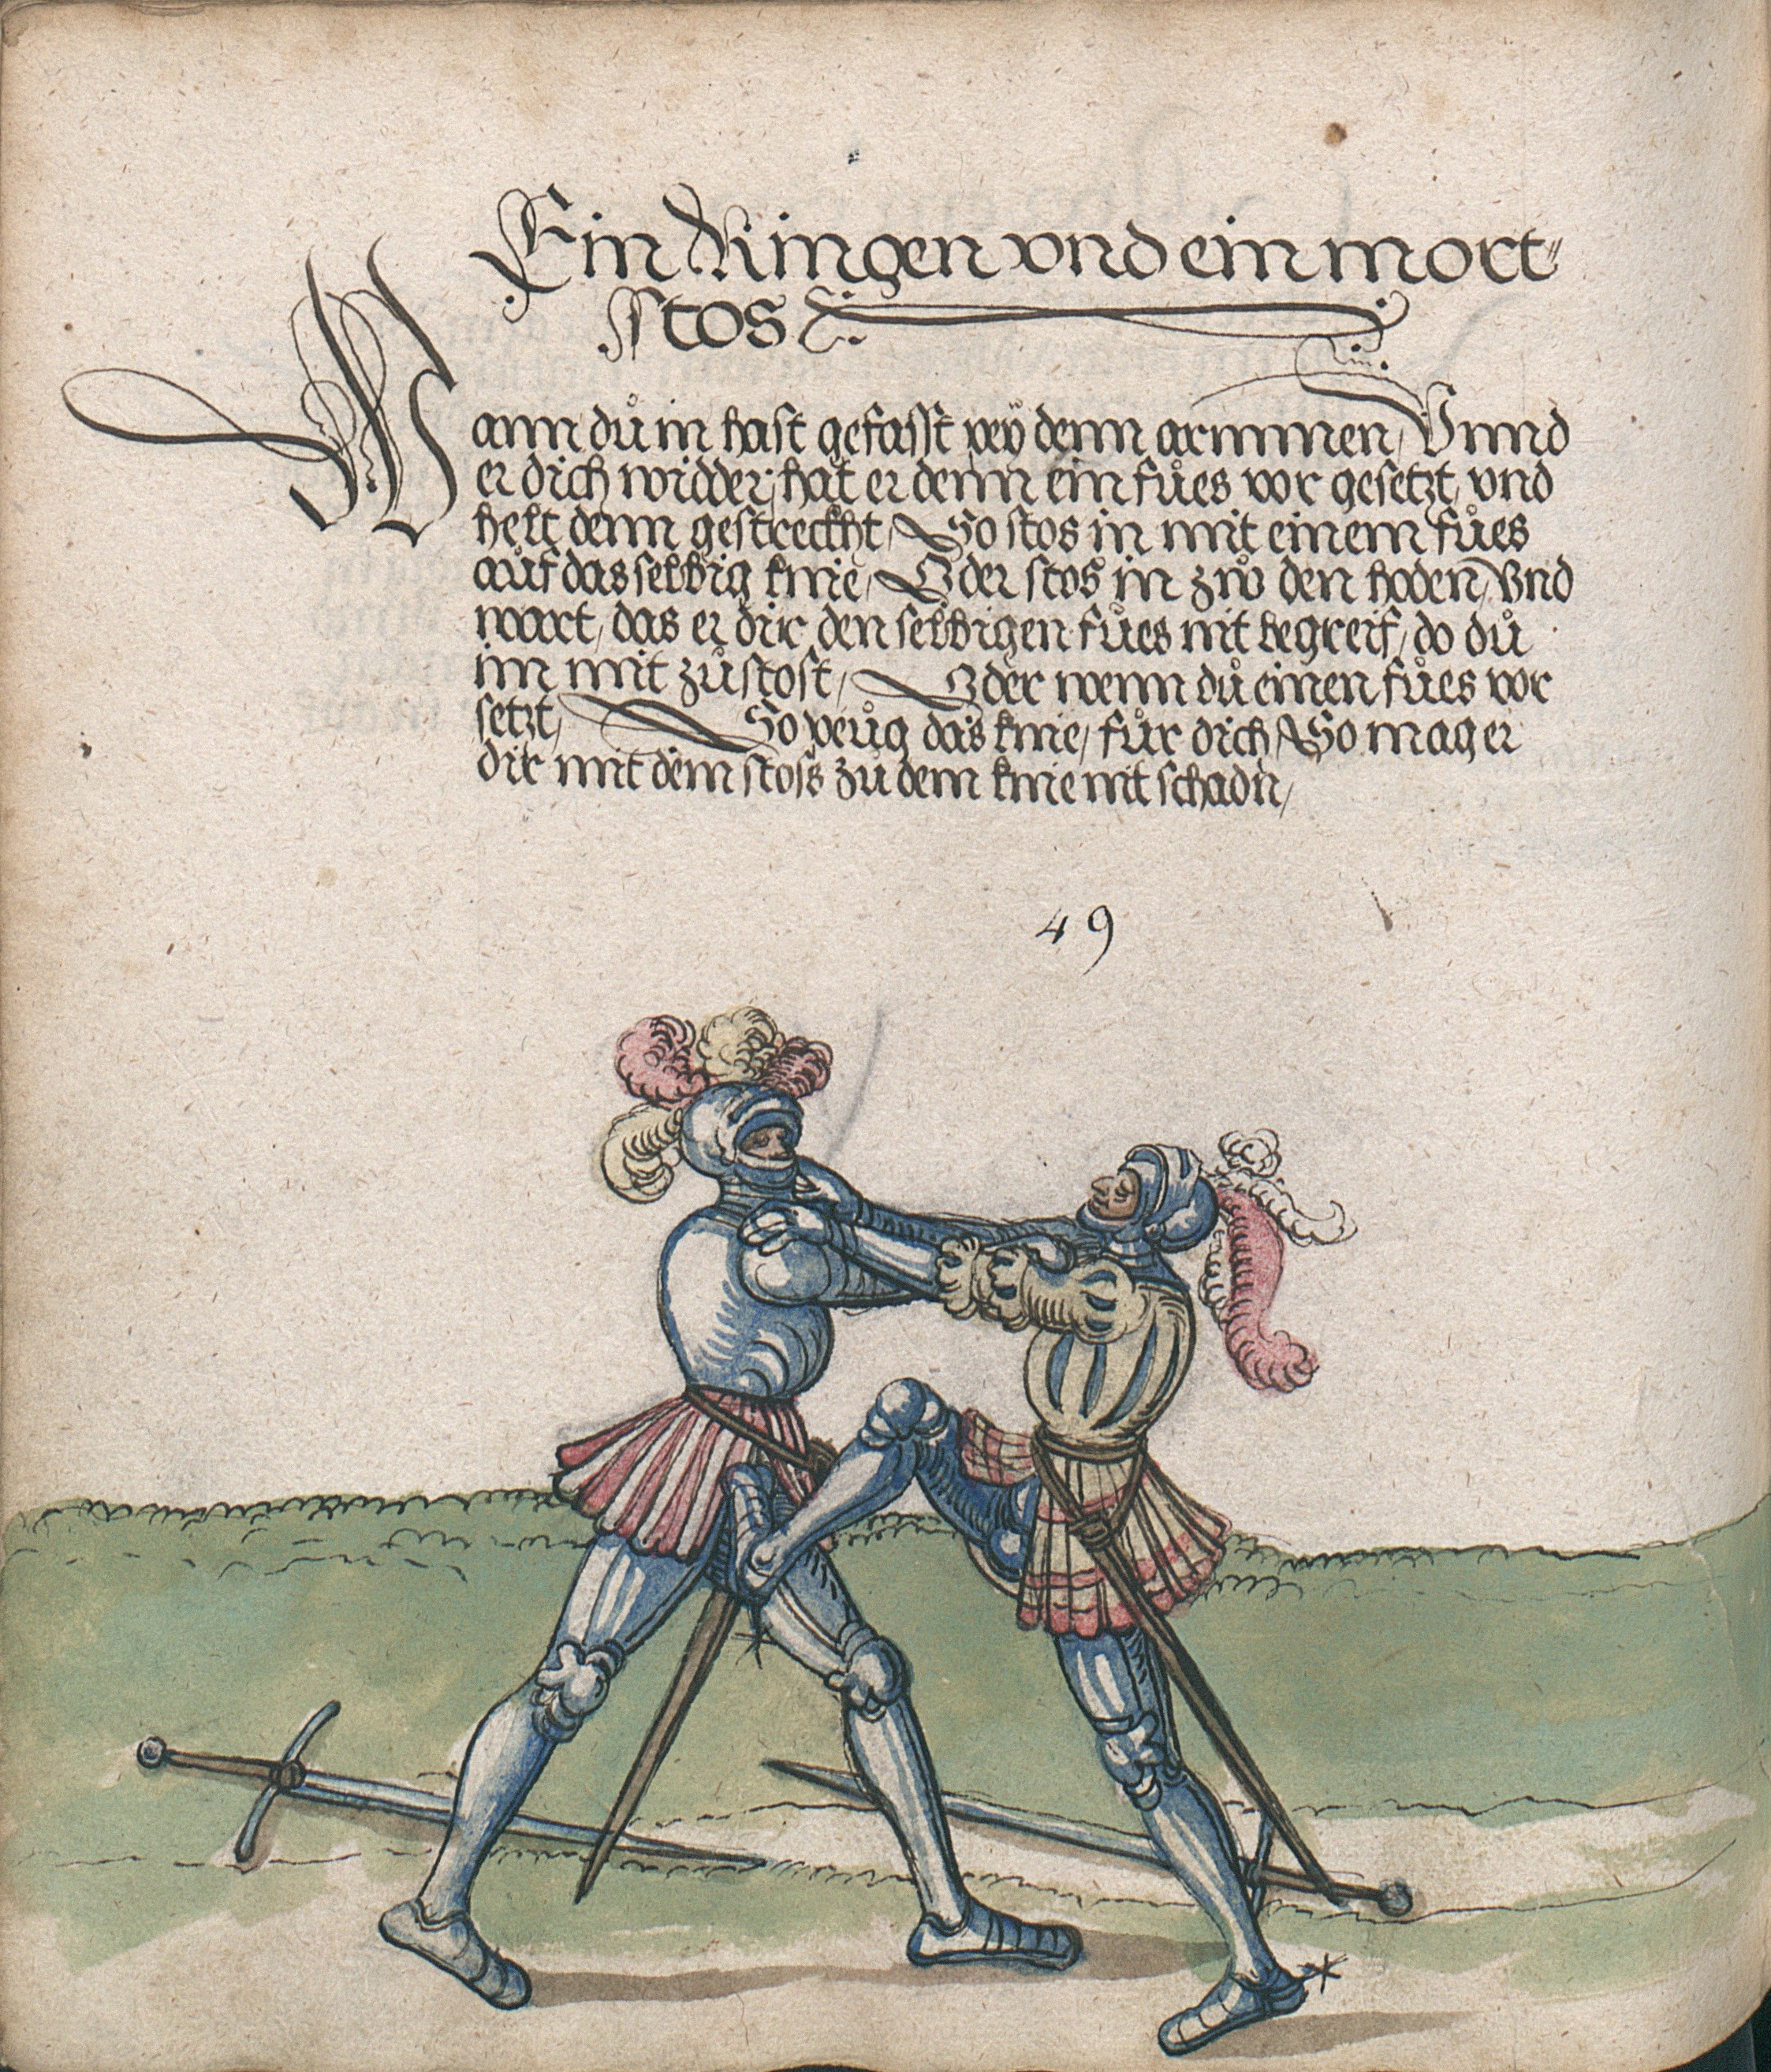 Ein Ringen vnd ein mort=
stos &.
Wann dů in hast gefasst peÿ denn armmen / Vnnd
er dich widder / hat er denn ein fůes vor gesetzt / vnd
helt denn gestreckht / So stos in mit einem fůes
aůf das selbig knie / Oder stos in zů den hoden / Vnd
wart / das er dir den selbigen fůes nit begreif / do dů
im mit zůstost / Oder wenn dů einen fůes vor
setzt / So peůg das knie / fůr dich / So mag er
dir mit dem stoss zů dem knie nit schadn /
49